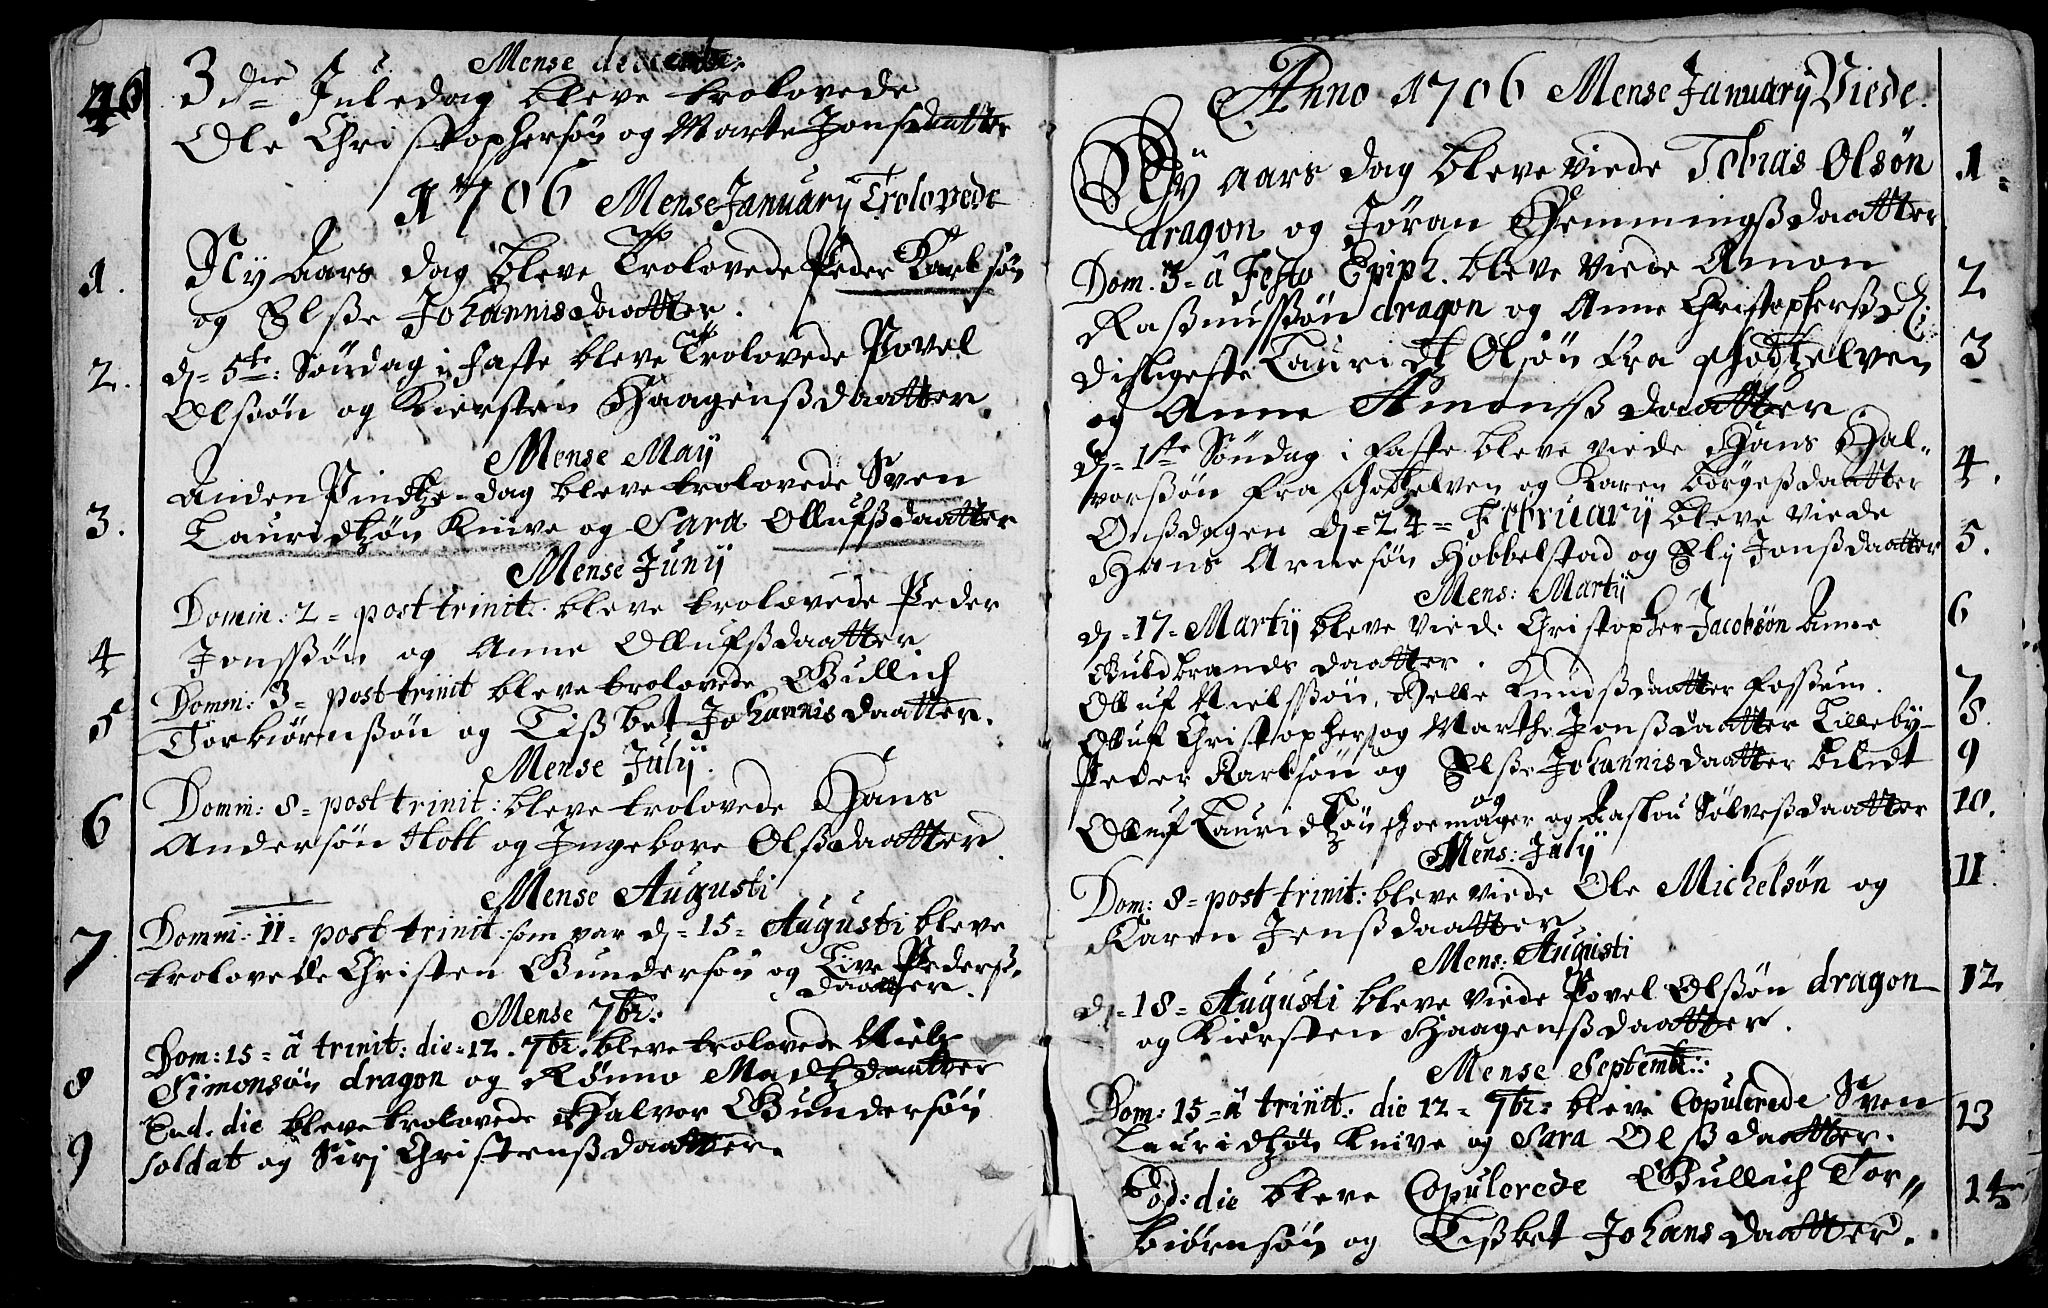 Mense decembr:
46
3die Juledag bleve trolovede
Ole Christophersøn og Marte Jonsdaatter
1706 Mense Januarij Trolovede
1.
Ny Aars dag bleve Trolovede Peder Karlsøn
og Elsße Johannisdaatter.
2.
d= 5te: Søndag i faste bleve Trolovede Povel
Olssøn og Kiersten Haagensßdaatter.
Mense Maij
3.
Anden Pindtze-dag bleve trolovede Sven
Lauridtzøn Knive og Sara Ollufsßdaatter
Mense Junij
4
Domin: 2= post trinit: bleve trolovede Peder
Jonssøn og Anne Ollufsßdaatter.
5
Domin: 3= post trinit bleve trolovede Gullich
Torbiørnsøn og Lisßbet Johannisdaatter.
Mense Julij
6
Domin: 8= post trinit: bleve trolovede Hans
Andersøn Hott og Ingebore Olsßdaatter.
Mense Augusti
7.
Domin: 11= post trinit: som var d= 15= Augusti bleve
trolovede Christen Gundersøn og Live Pedersß-
daatter.
Mense 7br:
8
Dom: 15= â trinit: die=12. 7br. bleve trolovede Nielß
Simonsøn dragon og Rønno Madtzdaatter
9
Eod. die bleve trolovede Halvor Gundersøn
soldat og Sirj Christensßdaatter.
Anno 1706 Mense Januarij Viede.
Ny aars dag bleve viede Tobias Olsøn 1=
dragon og Jøran Hemmingsßdaatter
Dom. 3= â Festo Epiph. bleve viede Amon 2
Rasmussøn dragon og Anne Christophersß D:
disligeste Lauridtz Olsøn fra Hotzelven 3
og Anne Amonsßdaatter.
d= 1te Søndag i faste bleve viede Hans Hal-
vorsøn fra Hotzelven og Karen Børgesßdaatter 4.
Onsdagen d= 24= Februarij bleve viede
Hans Arnesøn Hobbelstad og Elij Jonsßdaatter 5.
Mens: Martij
d= 17= Martij bleve viede Christopher Jacobsøn Anne 6
Guldbrands daatter.
Olluf Nielssøn, Helle Knudsßdaatter Fossum. 7
Olluf Christophers og Marthe Jonsßdaatter Lilleby- 8.
Peder Karlsøn og Elsße Johannisdaatter bildt 9
og
Olluf Lauridtzøn skoemager og Aaslou Sølvesßdaatter 10.
Mens: Julij
Dom: 8= post trinit: bleve viede Ole Michelsøn og 11.
Karen Jensßdaatter
Mens: Augusti
d= 18= Augusti bleve viede Povel Olsøn dragon 12
og Kiersten Haagensßdaatter.
Mense Septembr:
Dom: 15= â trinit: die 12= 7br: bleve Copulerede Sven 13
Lauridtzøn Knive og Sara Olsßdaatter.
Eod: die bleve Copulerede Gullich Tor- 14
biørnsøn og Lisßbet Johansdaatter.